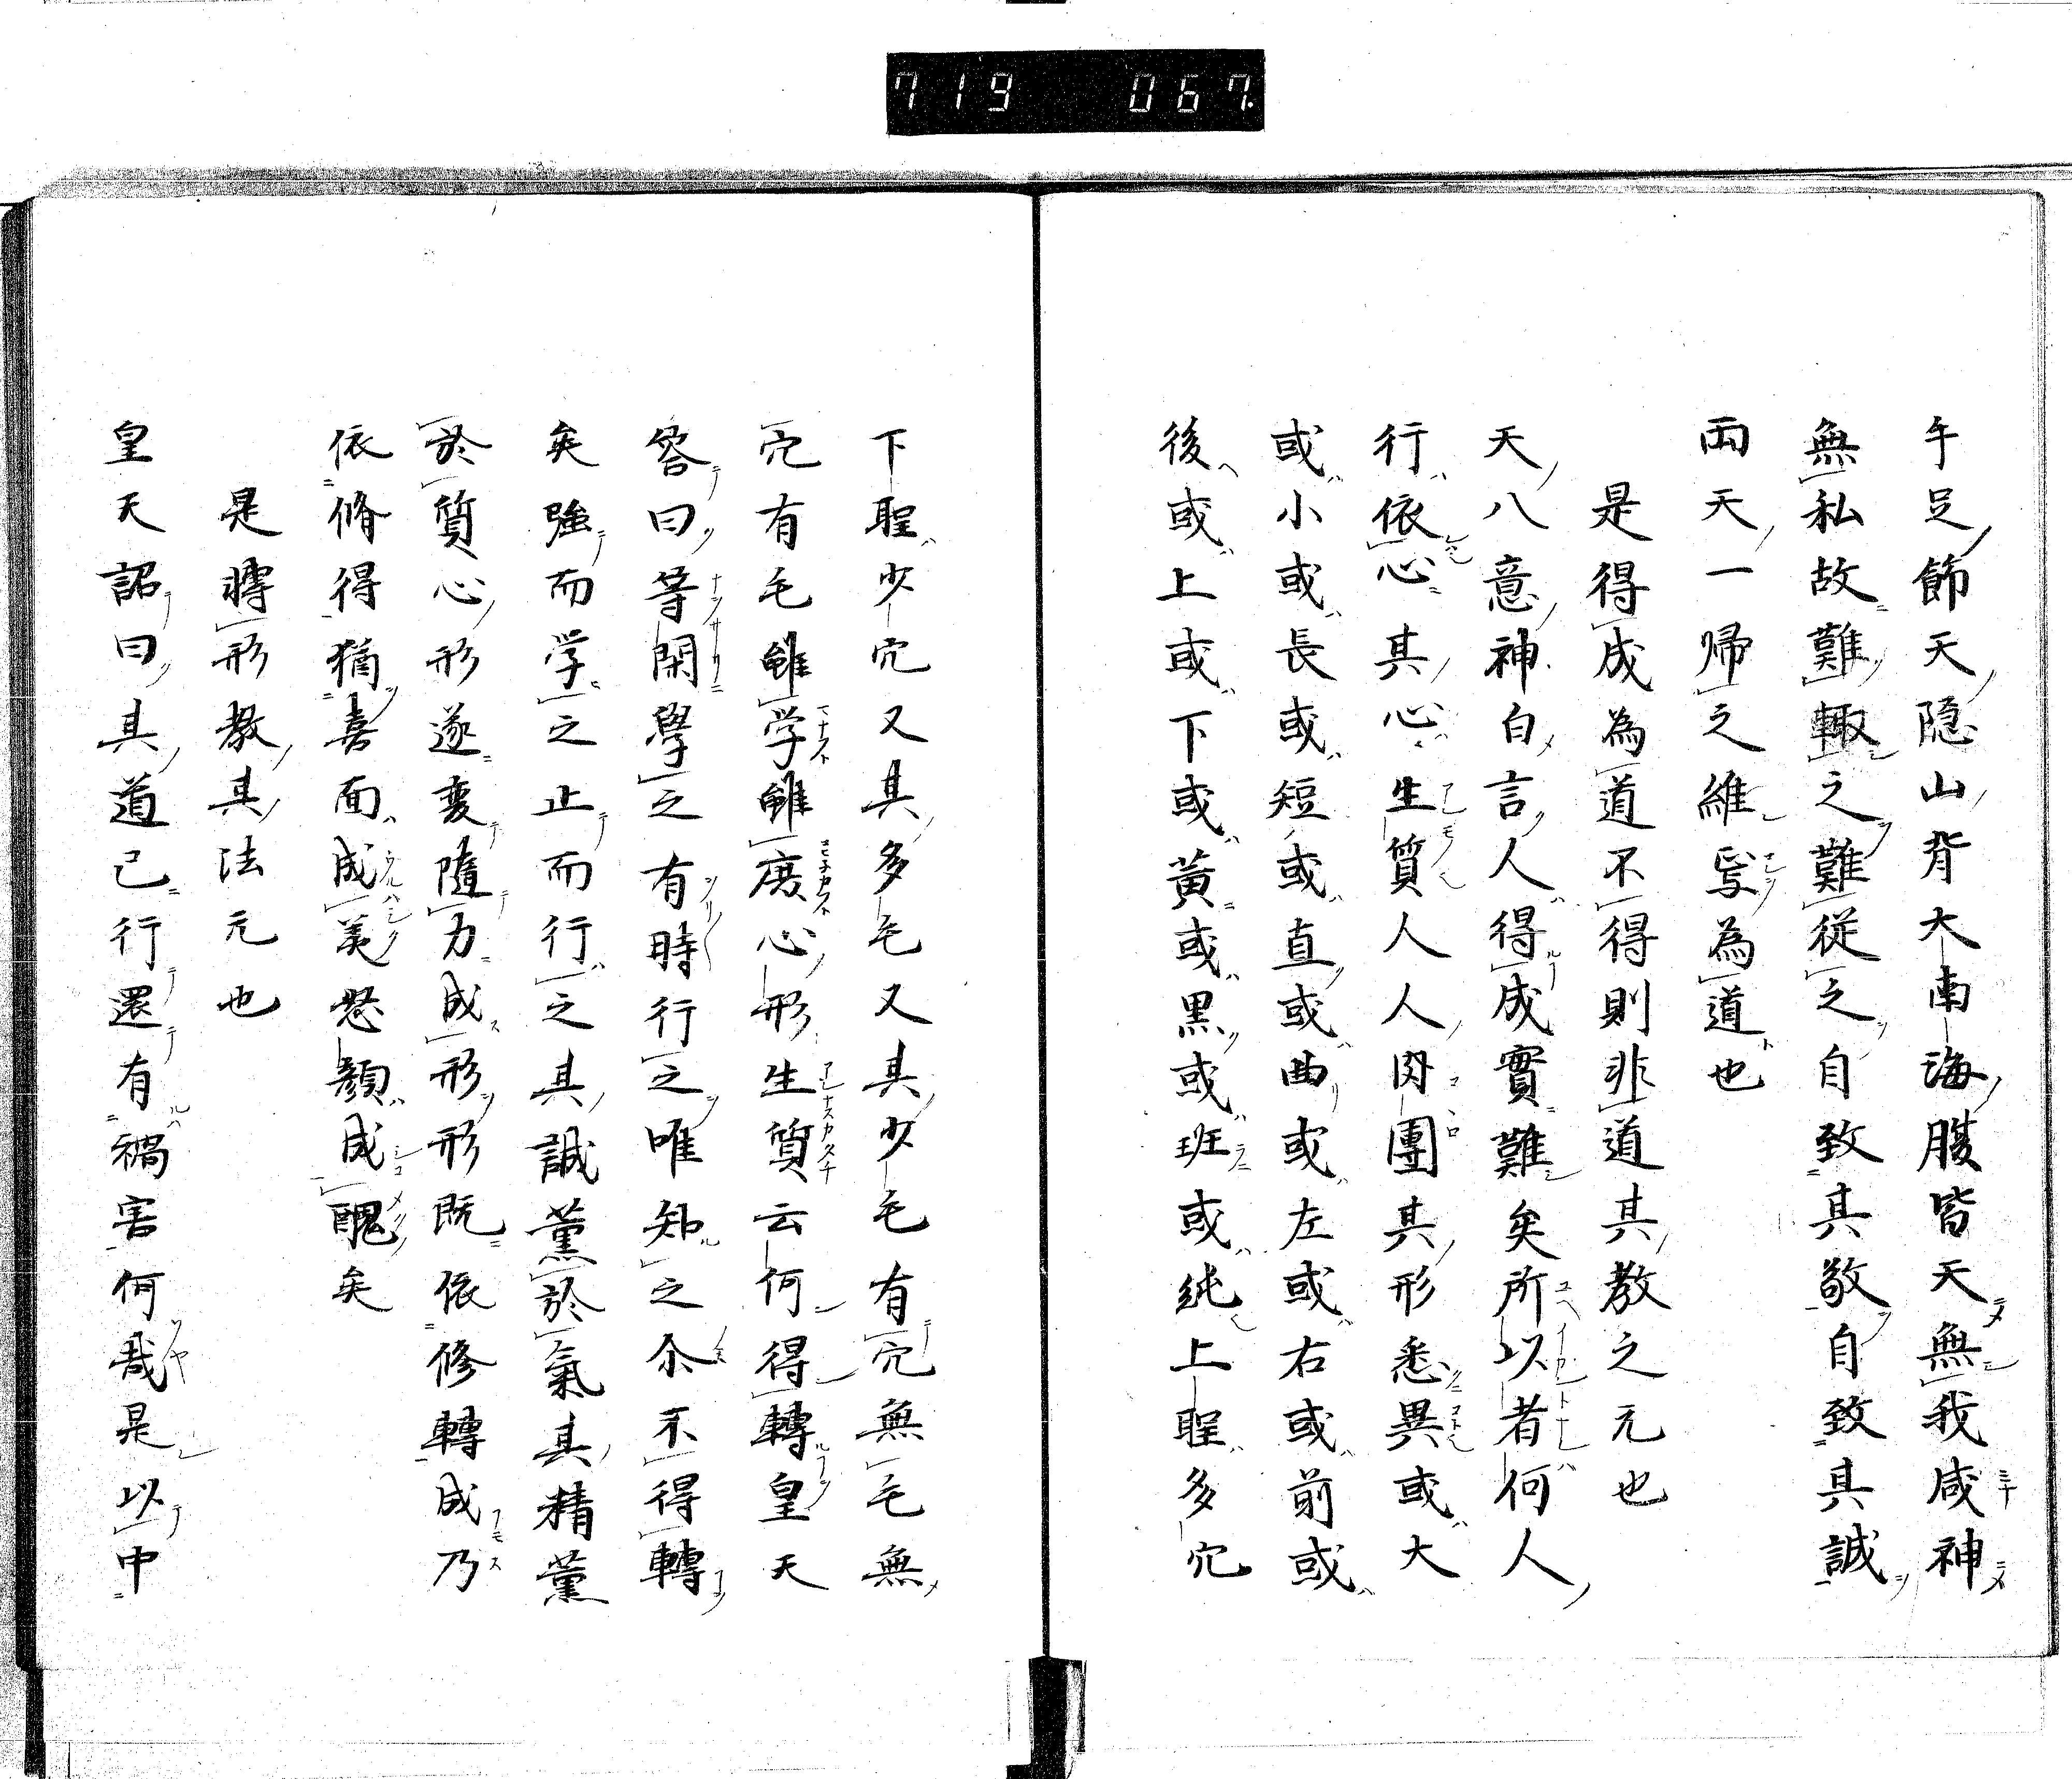 719 067
手足飾天隠山背大南海腹皆天無我咸神
無私故難輙之難従之自致其敬自致其誠
両天一帰之維寫為道也
是得成為道不得則非道其教之元也
天八意神白言人得成實難矣所以者何人
行依心其心生質人人肉團其形悉異或大
或小或長或短或直或曲或左或右或前或
後或上或下或黄或黒或班或純上聖多穴
下聖少穴又其多毛又其少毛有穴無毛無
穴有毛雖学雖麿心形生質云何得轉皇天
答曰等閑學之有時行之唯知之尒不得轉
矣強而学之止而行之其誠薫於氣其精薫
於質心形遂変隨力成形形既依修轉成乃
依脩得猶喜面成美怒顔成醜矣
是轉形教其法元也
皇天詔曰其道已行還有禍害何哉是以中